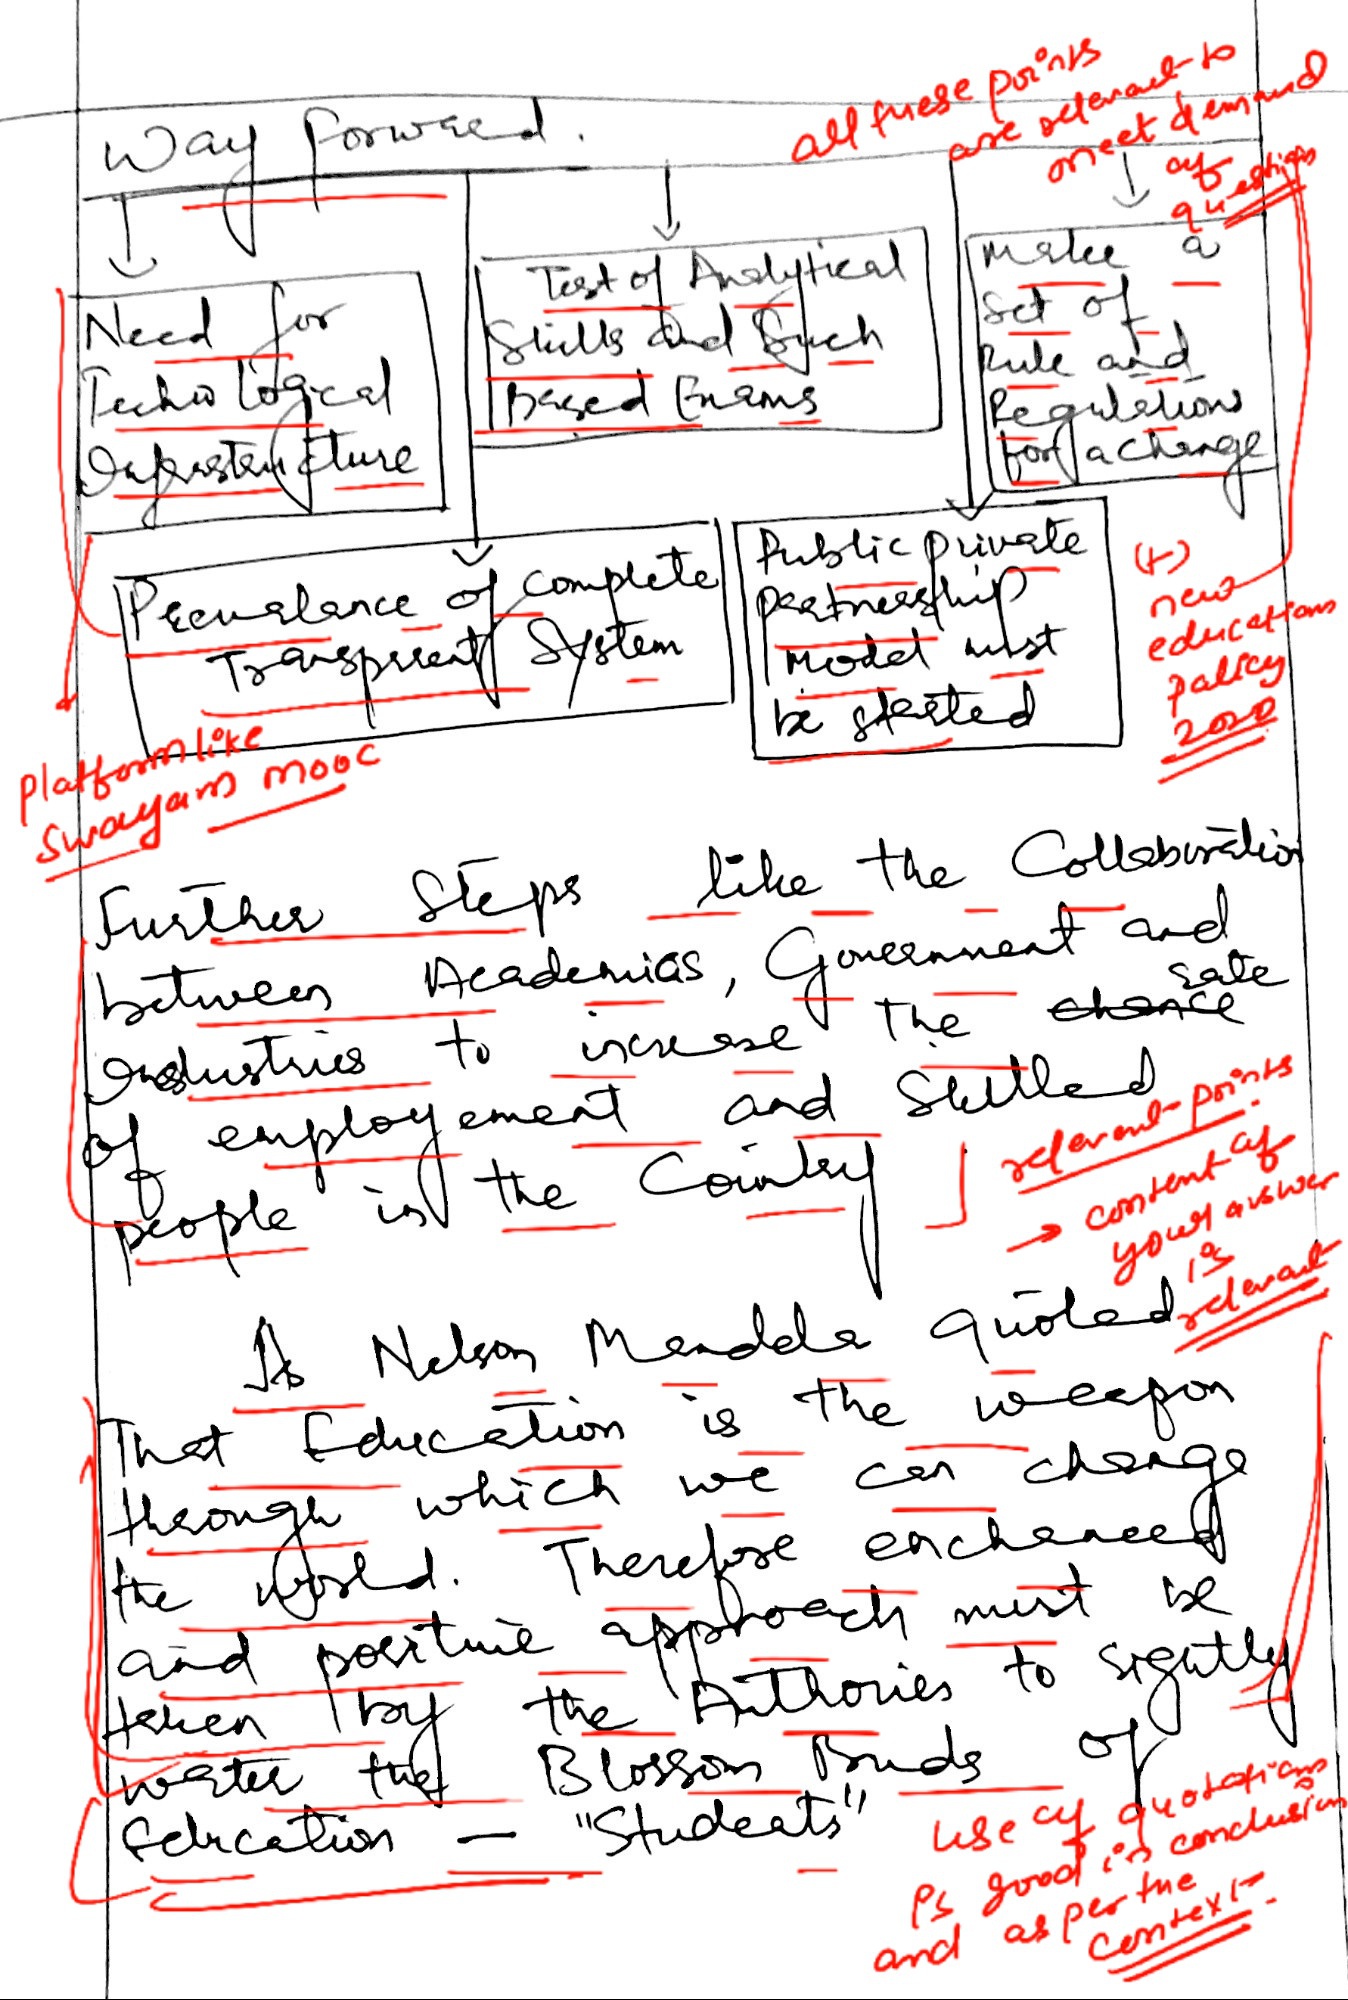 Way Forward.
all these points
are relevant to
meet demand
of
questions
Need for
Technological
Infrastructure
Test of Analytical
Skills and Such
Based Exams
Make a
Set of
Rule and
Regulations
for a change
Prevalance of complete
Transprent System
Public private
partnership
model must
be started
(+)
new
education
policy
2020
Platform like
Swayam mooc
Further Steps like the Collaboration
between Academias, Government and
Industries to increase the chance rate
of employement and Skilled
people in the Country
relevant points
→ content of
your answer
is
relevant
As Nelson Mandela quoted
That Education is the weapon
through which we can change
the world. Therefore enchanced
and positive approach must be
taken by the Authories to rightly
water the Blossom Buds of
Education — "Students"
use of quotations
is good in conclusion
and as per the
context.